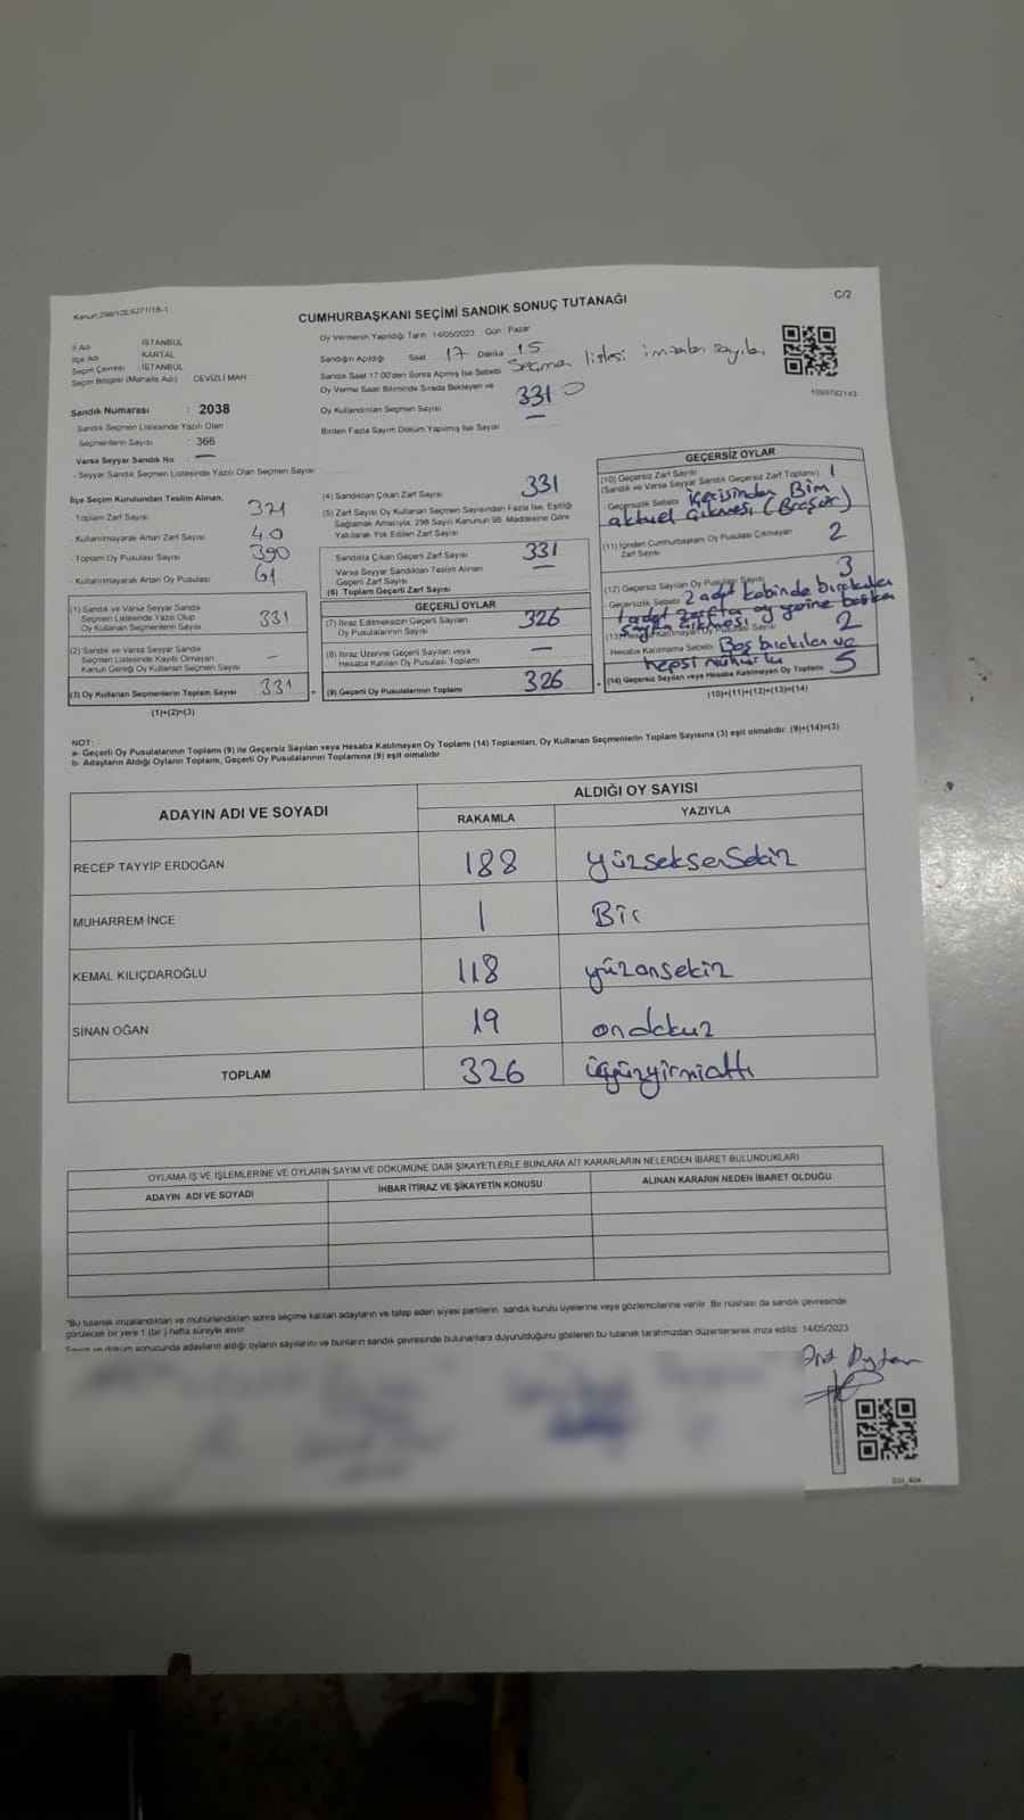 CUMHURBAŞKANI SEÇİMİ SANDIK SONUÇ TUTANAĞI
C/2
İl Adı : İSTANBUL
İlçe Adı : KARTAL
Seçim Çevresi : İSTANBUL
Seçim Bölgesi (Mahalle Adı) : CEVİZLİ MAH.
Sandık Numarası : 2038
Sandık Seçmen Listesinde Yazılı Olan
Seçmenlerin Sayısı : 366
Varsa Seyyar Sandık No : —
- Seyyar Sandık Seçmen Listesinde Yazılı Olan Seçmen Sayısı
Oy Vermenin Yapıldığı Tarih : 14/05/2023 Gün : Pazar
Sandığın Açıldığı Saat 17 Dakika 15
Sandık Saat 17.00'den Sonra Açılmış İse Sebebi Seçmen listesi imzaları sayılıp
Oy Verme Saati Bitiminde Sırada Bekleyen ve
Oy Kullandırılan Seçmen Sayısı 331
Birden Fazla Sayım Döküm Yapılmış İse Sayısı
İlçe Seçim Kurulundan Teslim Alınan,
- Toplam Zarf Sayısı 371
- Kullanılmayarak Artan Zarf Sayısı 40
- Toplam Oy Pusulası Sayısı 390
- Kullanılmayarak Artan Oy Pusulası 61
(1) Sandık ve Varsa Seyyar Sandık
Seçmen Listesinde Yazılı Olup
Oy Kullanan Seçmenlerin Sayısı 331
(2) Sandık ve Varsa Seyyar Sandık
Seçmen Listesinde Kayıtlı Olmayan
Kanun Gereği Oy Kullanan Seçmen Sayısı —
(3) Oy Kullanan Seçmenlerin Toplam Sayısı 331
(1)+(2)=(3)
(4) Sandıktan Çıkan Zarf Sayısı 331
(5) Zarf Sayısı Oy Kullanan Seçmen Sayısından Fazla İse, Eşitliği
Sağlamak Amacıyla, 298 Sayılı Kanunun 98. Maddesine Göre
Yakılarak Yok Edilen Zarf Sayısı
Sandıkta Çıkan Geçerli Zarf Sayısı 331
Varsa Seyyar Sandıktan Teslim Alınan
Geçerli Zarf Sayısı —
(6) Toplam Geçerli Zarf Sayısı
GEÇERLİ OYLAR
(7) İtiraz Edilmeksizin Geçerli Sayılan
Oy Pusulalarının Sayısı 326
(8) İtiraz Üzerine Geçerli Sayılan veya
Hesaba Katılan Oy Pusulası Toplamı —
(9) Geçerli Oy Pusulalarının Toplamı 326
GEÇERSİZ OYLAR
(10) Geçersiz Zarf Sayısı
(Sandık ve Varsa Seyyar Sandık Geçersiz Zarf Toplamı) 1
Geçersizlik Sebebi içerisinden Bim
aktuel çıkması (Broşür)
(11) İçinden Cumhurbaşkanı Oy Pusulası Çıkmayan
Zarf Sayısı 2
(12) Geçersiz Sayılan Oy Pusulası Sayısı 3
Geçersizlik Sebebi 2 adet kabinde bırakılan
1 adet zarfta oy yerine başka
sayfa çıkması
(13) Hesaba Katılmayan Oy Pusulası Sayısı 2
Hesaba Katılmama Sebebi Boş bırakılan ve
hepsi mühürlü
(14) Geçersiz Sayılan veya Hesaba Katılmayan Oy Toplamı 5
(10)+(11)+(12)+(13)=(14)
NOT:
a- Geçerli Oy Pusulalarının Toplamı (9) ile Geçersiz Sayılan veya Hesaba Katılmayan Oy Toplamı (14) Toplamları, Oy Kullanan Seçmenlerin Toplam Sayısına (3) eşit olmalıdır. (9)+(14)=(3)
b- Adayların Aldığı Oyların Toplamı, Geçerli Oy Pusulalarının Toplamına (9) eşit olmalıdır.
ADAYIN ADI VE SOYADI
ALDIĞI OY SAYISI
RAKAMLA YAZIYLA
RECEP TAYYİP ERDOĞAN 188 yüzseksensekiz
MUHARREM İNCE 1 Bir
KEMAL KILIÇDAROĞLU 118 yüzonsekiz
SİNAN OĞAN 19 ondokuz
TOPLAM 326 üçyüzyirmialtı
OYLAMA İŞ VE İŞLEMLERİNE VE OYLARIN SAYIM VE DÖKÜMÜNE DAİR ŞİKAYETLERLE BUNLARA AİT KARARLARIN NELERDEN İBARET BULUNDUKLARI
ADAYIN ADI VE SOYADI
İHBAR İTİRAZ VE ŞİKAYETİN KONUSU
ALINAN KARARIN NEDEN İBARET OLDUĞU
"Bu tutanak imzalandıktan ve mühürlendikten sonra seçime katılan adayların ve talep eden siyasi partilerin, sandık kurulu üyelerine veya gözlemcilerine verilir. Bir nüshası da sandık çevresinde
görülecek bir yere 1 (bir) hafta süreyle asılır.
Sayım ve döküm sonucunda adayların aldığı oyların sayılarını ve bunların sandık çevresinde bulunanlara duyurulduğunu gösteren bu tutanak tarafımızdan düzenlenerek imza edildi. 14/05/2023